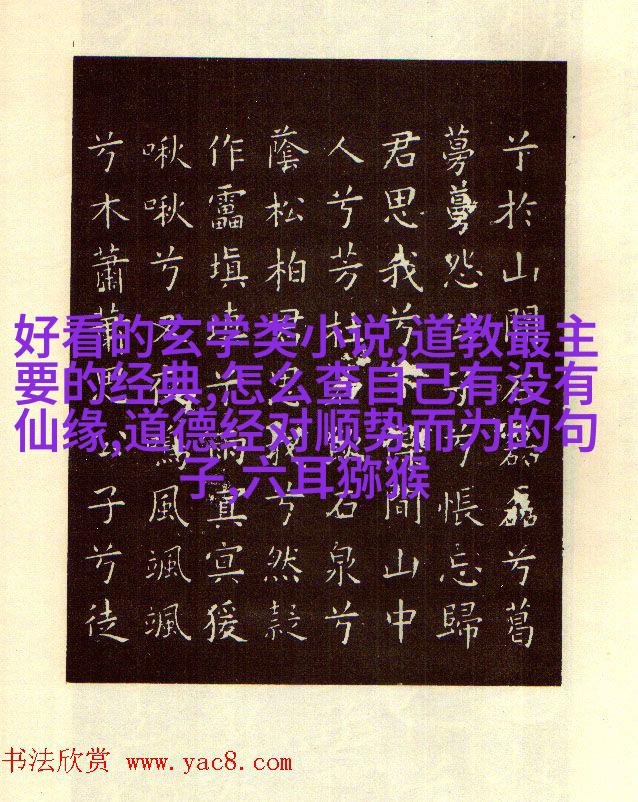 兮於山間磊磊兮葛
蔓蔓怨子兮悵忘歸
君思我兮間山中
人兮芳杜石泉兮
蔭松柏君思我兮然疑
作靁填填兮雨冥冥猨
啾啾兮鳴風颯颯
兮木蕭蕭公子兮徒
好看的玄学类小说,道教最主
要的经典,怎么查自己有没有
仙缘,道德经对顺势而为的句
子,六耳猕猴
书法欣赏 www.yac8.com